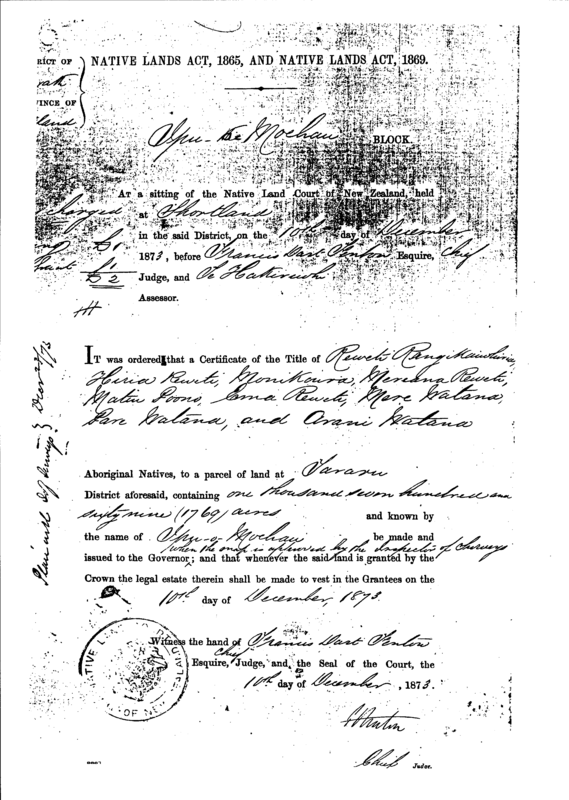 RICT OF
INCE OF
NATIVE LANDS ACT, 1865, AND NATIVE LANDS ACT, 1869.
Ipu- Moehau BLOCK.
AT a sitting of the Native Land Court of New Zealand, held
at Shortland
in the said District, on the 10th day of December
1873, before Francis Dart Fenton Esquire, Chief
Judge, and Te
Assessor.
IT was ordered that a Certificate of the Title of Reweti
Hiria Reweti, Reweti,
Reweti, Mere Watana,
Watana, and Arani Watana
Aboriginal Natives, to a parcel of land at Tararu
District aforesaid, containing one thousand seven hundred and
sixty nine (1769) acres and known by
the name of Ipu-o-Moehau be made and
when the map is approved by the Inspector of Surveys
issued to the Governor; and that whenever the said land is granted by the
Crown the legal estate therein shall be made to vest in the Grantees on the
10th day of December, 1873.
Witness the hand of Francis Dart Fenton
Chief
Esquire, Judge, and the Seal of the Court, the
10th day of December, 1873.
Chief Judge.